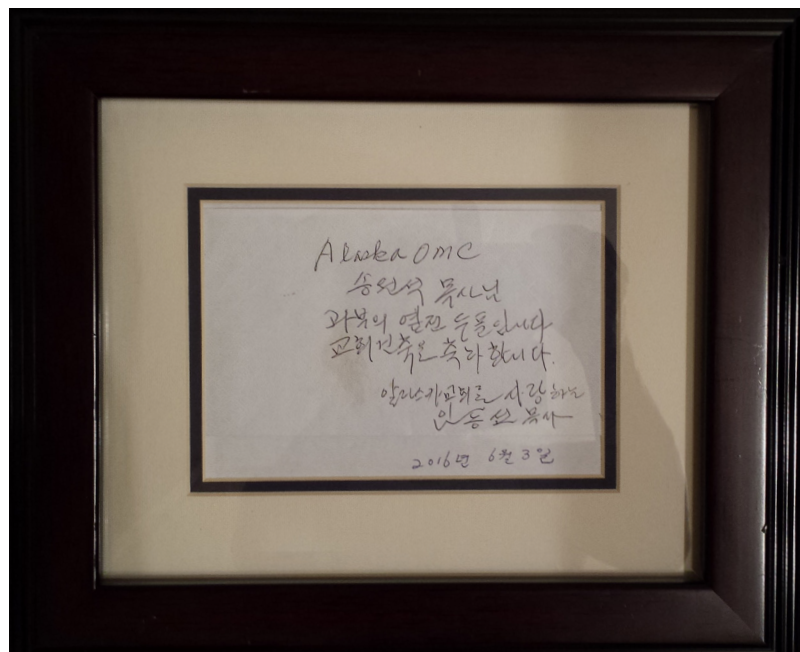 Alaska OMC
송원석 목사님
과부의 엽전 두돌입니다
교회건축을 축하합니다.
알라스카교회를 사랑하는
인동선 목사
2016년 6월 3일